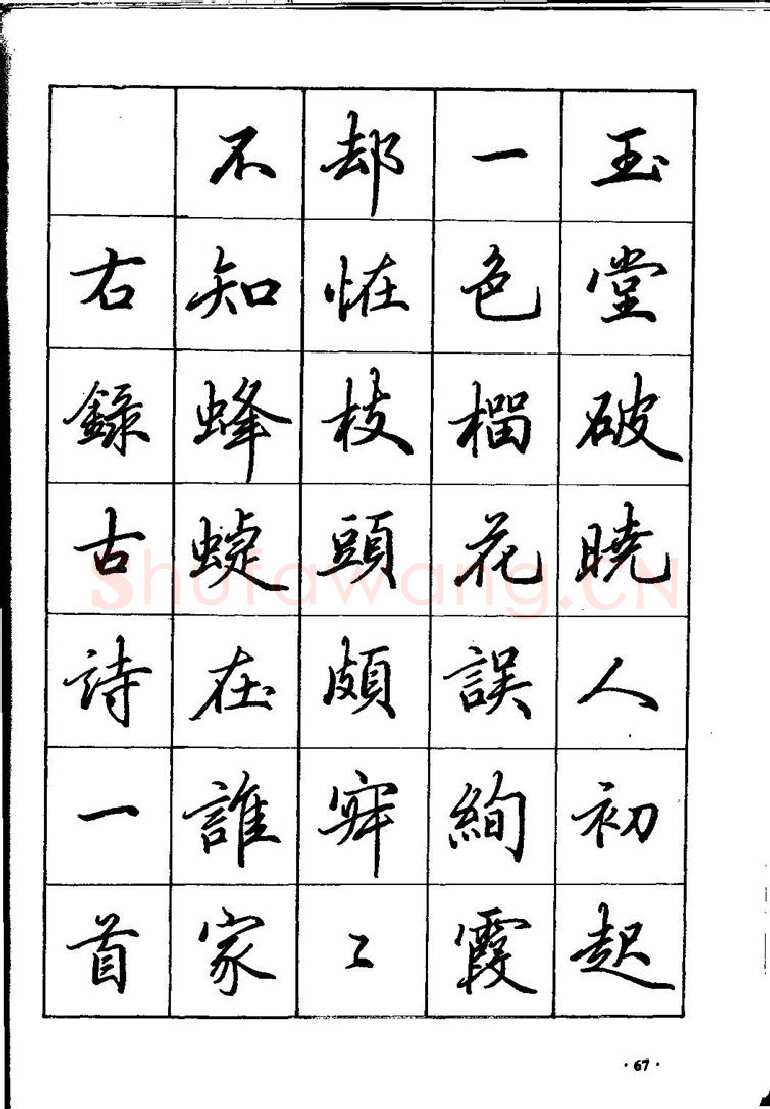 玉堂破曉人初起
一色榴花誤絢霞
却恠枝頭頗寂々
不知蜂蜨在誰家
右錄古詩一首
shufawang.CN
·67·